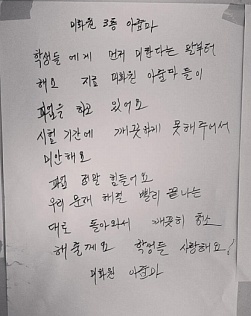 미화원 3층 아줌마
학생들 에게 먼저 미안 하다는 말부터
해요 지금 미화원 아줌마들이
파업을 하고 있어요
시험 기간에 깨끗하게 못해주어서
미안해요
파업 정말 힘들어요
우리 문제 해결 빨리 끝나는
대로 돌아와서 깨끗히 청소
해줄게요 학생들 사랑해요!
미화원 아줌마